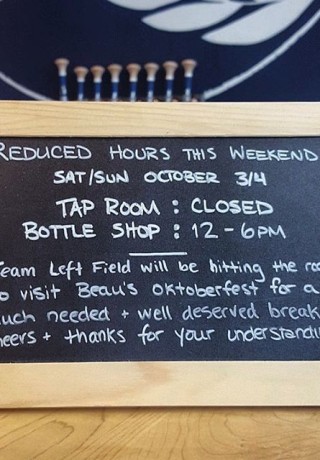 REDUCED HOURS THIS WEEKEND
SAT/SUN OCTOBER 3/4
TAP ROOM : CLOSED
BOTTLE SHOP : 12-6PM
Team Left Field will be hitting the
to visit Beau's Oktoberfest for a
much needed + well deserved break
cheers + thanks for your